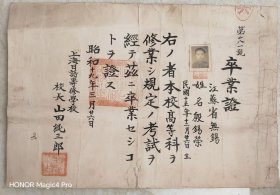 卒業證
第九一號
江蘇省無錫
姓名 殷錫榮
民國十五年十二月廿六日生
右ノ者本校高等科ヲ
修業シ規定ノ考試ヲ
經テ茲ニ卒業セシコ
トヲ證ス
昭和十九年三月廿六日
上海日語專修學校
校長 山田純三郎
HONOR Magic4 Pro